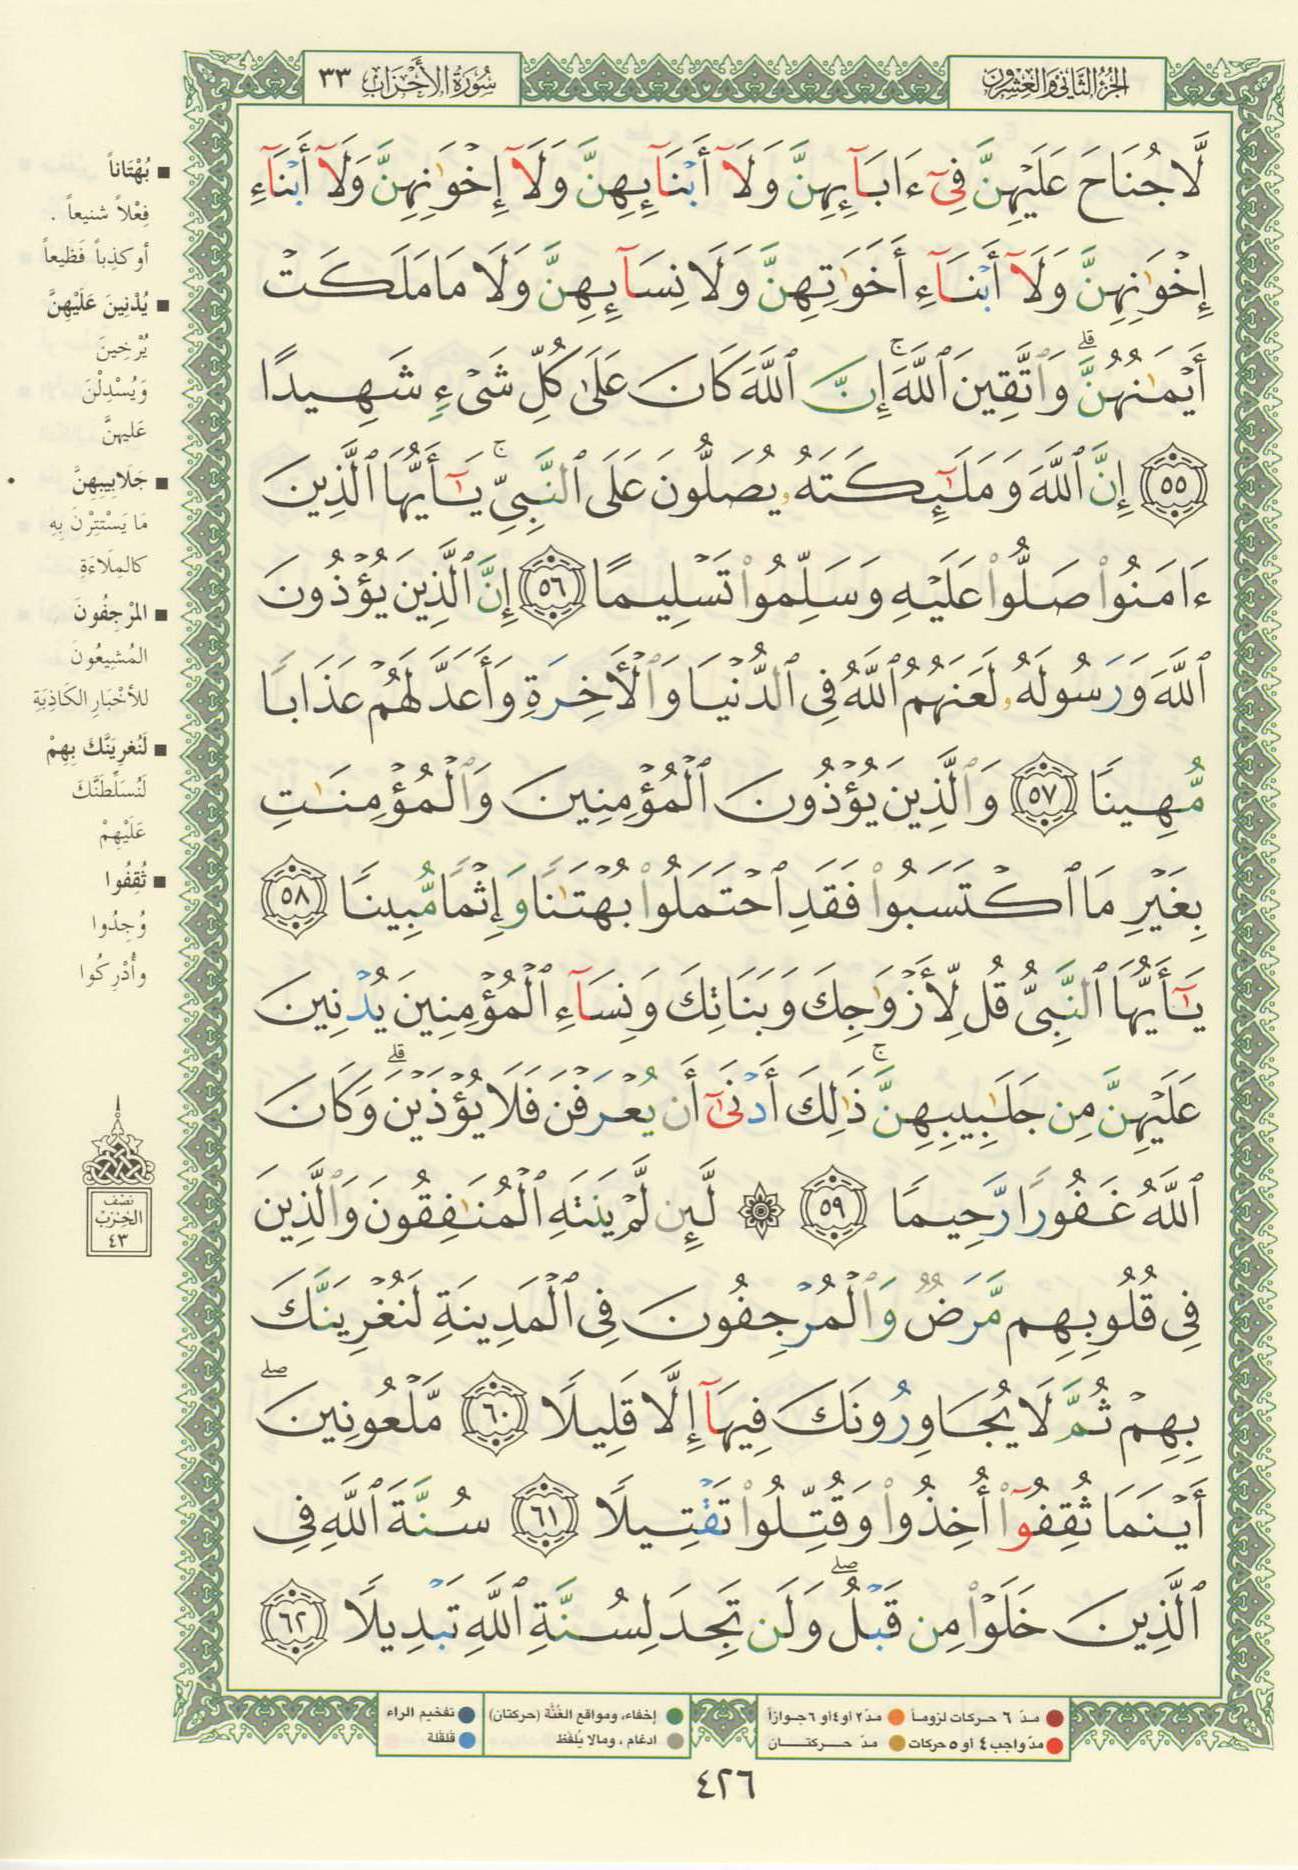 الجزء الثاني والعشرون
سورة الأحزاب ٣٣
لَّا جُنَاحَ عَلَيْهِنَّ فِىٓ ءَابَآئِهِنَّ وَلَآ أَبْنَآئِهِنَّ وَلَآ إِخْوَٰنِهِنَّ وَلَآ أَبْنَآءِ
إِخْوَٰنِهِنَّ وَلَآ أَبْنَآءِ أَخَوَٰتِهِنَّ وَلَا نِسَآئِهِنَّ وَلَا مَا مَلَكَتْ
أَيْمَٰنُهُنَّ ۗ وَٱتَّقِينَ ٱللَّهَ ۚ إِنَّ ٱللَّهَ كَانَ عَلَىٰ كُلِّ شَىْءٍ شَهِيدًا
٥٥ إِنَّ ٱللَّهَ وَمَلَٰٓئِكَتَهُۥ يُصَلُّونَ عَلَى ٱلنَّبِىِّ ۚ يَٰٓأَيُّهَا ٱلَّذِينَ
ءَامَنُوا۟ صَلُّوا۟ عَلَيْهِ وَسَلِّمُوا۟ تَسْلِيمًا ٥٦ إِنَّ ٱلَّذِينَ يُؤْذُونَ
ٱللَّهَ وَرَسُولَهُۥ لَعَنَهُمُ ٱللَّهُ فِى ٱلدُّنْيَا وَٱلْأَخِرَةِ وَأَعَدَّ لَهُمْ عَذَابًا
مُّهِينًا ٥٧ وَٱلَّذِينَ يُؤْذُونَ ٱلْمُؤْمِنِينَ وَٱلْمُؤْمِنَٰتِ
بِغَيْرِ مَا ٱكْتَسَبُوا۟ فَقَدِ ٱحْتَمَلُوا۟ بُهْتَٰنًا وَإِثْمًا مُّبِينًا ٥٨
يَٰٓأَيُّهَا ٱلنَّبِىُّ قُل لِّأَزْوَٰجِكَ وَبَنَاتِكَ وَنِسَآءِ ٱلْمُؤْمِنِينَ يُدْنِينَ
عَلَيْهِنَّ مِن جَلَٰبِيبِهِنَّ ۚ ذَٰلِكَ أَدْنَىٰٓ أَن يُعْرَفْنَ فَلَا يُؤْذَيْنَ ۗ وَكَانَ
ٱللَّهُ غَفُورًا رَّحِيمًا ٥٩ ۞ لَّئِن لَّمْ يَنتَهِ ٱلْمُنَٰفِقُونَ وَٱلَّذِينَ
فِى قُلُوبِهِم مَّرَضٌ وَٱلْمُرْجِفُونَ فِى ٱلْمَدِينَةِ لَنُغْرِيَنَّكَ
بِهِمْ ثُمَّ لَا يُجَاوِرُونَكَ فِيهَآ إِلَّا قَلِيلًا ٦٠ مَّلْعُونِينَ ۖ
أَيْنَمَا ثُقِفُوٓا۟ أُخِذُوا۟ وَقُتِّلُوا۟ تَقْتِيلًا ٦١ سُنَّةَ ٱللَّهِ فِى
ٱلَّذِينَ خَلَوْا۟ مِن قَبْلُ ۖ وَلَن تَجِدَ لِسُنَّةِ ٱللَّهِ تَبْدِيلًا ٦٢
■ بُهْتَاناً
فِعْلاً شنيعاً .
أو كذِباً فَظيعاً
■ يُدْنِينَ عَلَيْهِنَّ
يُرْخِينَ
وَيُسْدِلْنَ
عَليهنَّ
■ جَلَابِيبِهِنَّ
مَا يَسْتَتِرْنَ بِهِ
كالمِلَاءَةِ
■ المرْجِفُونَ
المُشِيعُونَ
للأخْبَارِ الكَاذِبَةِ
■ لَنُغرِيَنَّكَ بِهِمْ
لَنُسَلِّطَنَّكَ
عَلَيْهِمْ
■ ثُقِفُوا
وُجِدُوا
وأُدْرِكُوا
نصف
الحزب
٤٣
مدّ ٦ حركات لزوماً
مدّ ٢ أو ٤ أو ٦ جوازاً
مدّ واجب ٤ أو ٥ حركات
مدّ حركتان
إخفاء، ومواقع الغُنَّة (حركتان)
ادغام ، ومالا يُلفَظ
تفخيم الراء
قلقلة
٤٢٦